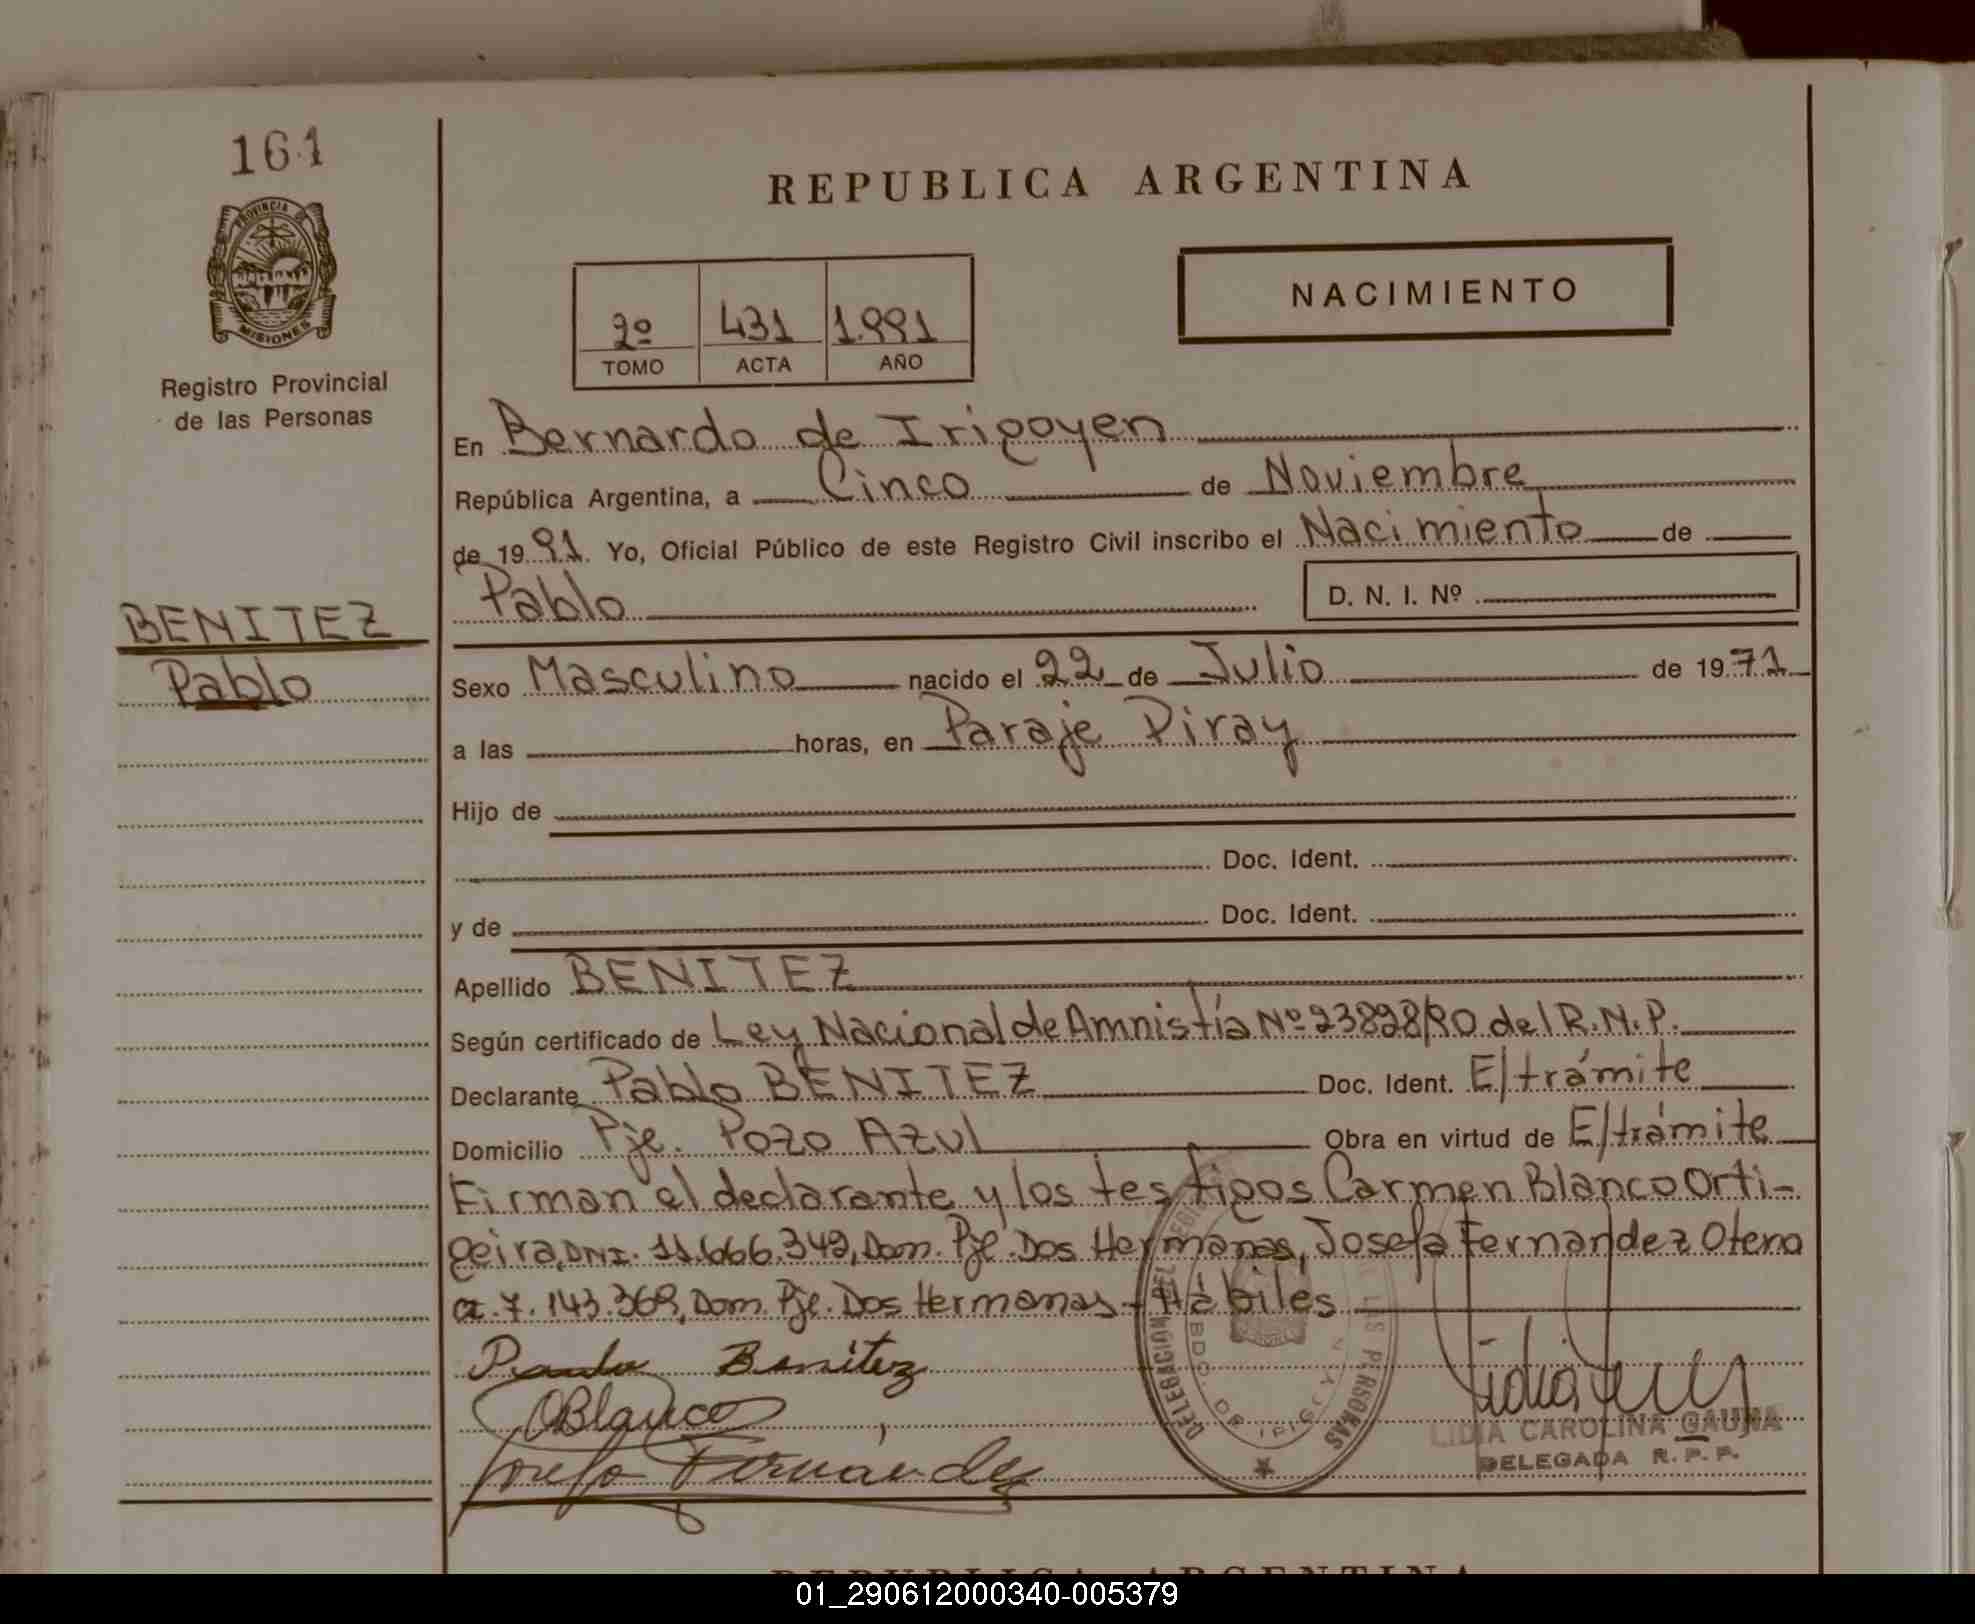 161
PROVINCIA DE
MISIONES
Registro Provincial
de las Personas
REPUBLICA ARGENTINA
2º 431 1.991
TOMO ACTA AÑO
NACIMIENTO
En Bernardo de Irigoyen
República Argentina, a Cinco de Noviembre
de 1991. Yo, Oficial Público de este Registro Civil inscribo el Nacimiento de
Pablo D. N. I. Nº
BENITEZ
Pablo
Sexo Masculino nacido el 22 de Julio de 1971
a las horas, en Paraje Piray
Hijo de
Doc. Ident.
y de Doc. Ident.
Apellido BENITEZ
Según certificado de Ley Nacional de Amnistía Nº 23828/90 del R.N.P.
Declarante Pablo BENITEZ Doc. Ident. E/trámite
Domicilio Pje. Pozo Azul Obra en virtud de E/trámite
Firman el declarante y los testigos Carmen Blanco Orti-
geira, DNI. 11.666.342, Dom. Pje. Dos Hermanas, Josefa Fernandez Otero
CI. 7.143.369, Dom. Pje. Dos Hermanas - Hábiles
Benitez
Blanco
Josefa Fernández
DELEGACION DEL LAS PERSONAS
BDO. DE IRIGOYEN
LIDIA CAROLINA GAUNA
DELEGADA R.P.P.
REPUBLICA ARGENTINA
01_290612000340-005379